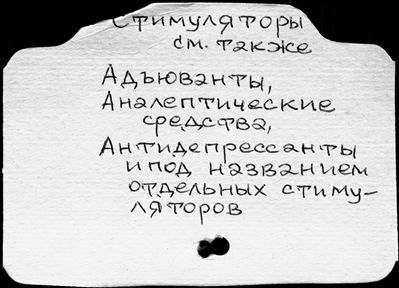 Стимуляторы
см. также
Адъюванты,
Аналептические
средства,
Антидепрессанты
и под названием
отдельных стиму-
ляторов